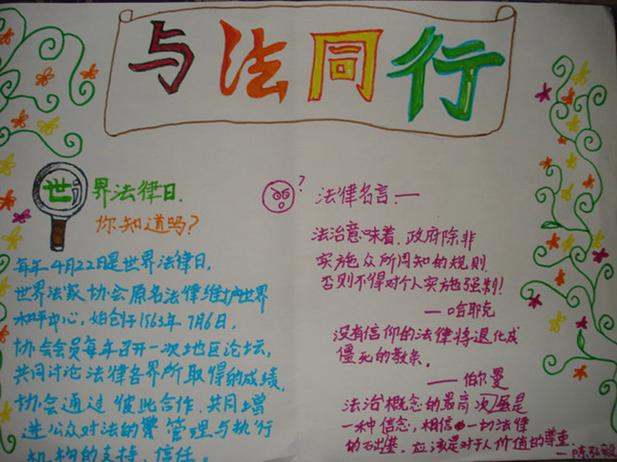 与法同行
世界法律日.
你知道吗?
每年4月22日是世界法律日,
世界法家协会原名法律维护世界
和平中心,始创于1963年7月6日,
协会会员每年召开一次地区论坛,
共同讨论法律各界所取得的成绩.
协会通过彼此合作.共同增
进公众对法的 管理与执行
机构的支持、信任.
?
法律名言:—
法治意味着,政府除非
实施众所周知的规则.
否则不得对个人实施强制!
— 哈耶克
没有信仰的法律将退化成
僵死的教条.
—— 伯尔曼
法治概念的最高 是
一种信念,相信一切法律
的 基.应该是对于人价值的尊重.
— 陈弘毅